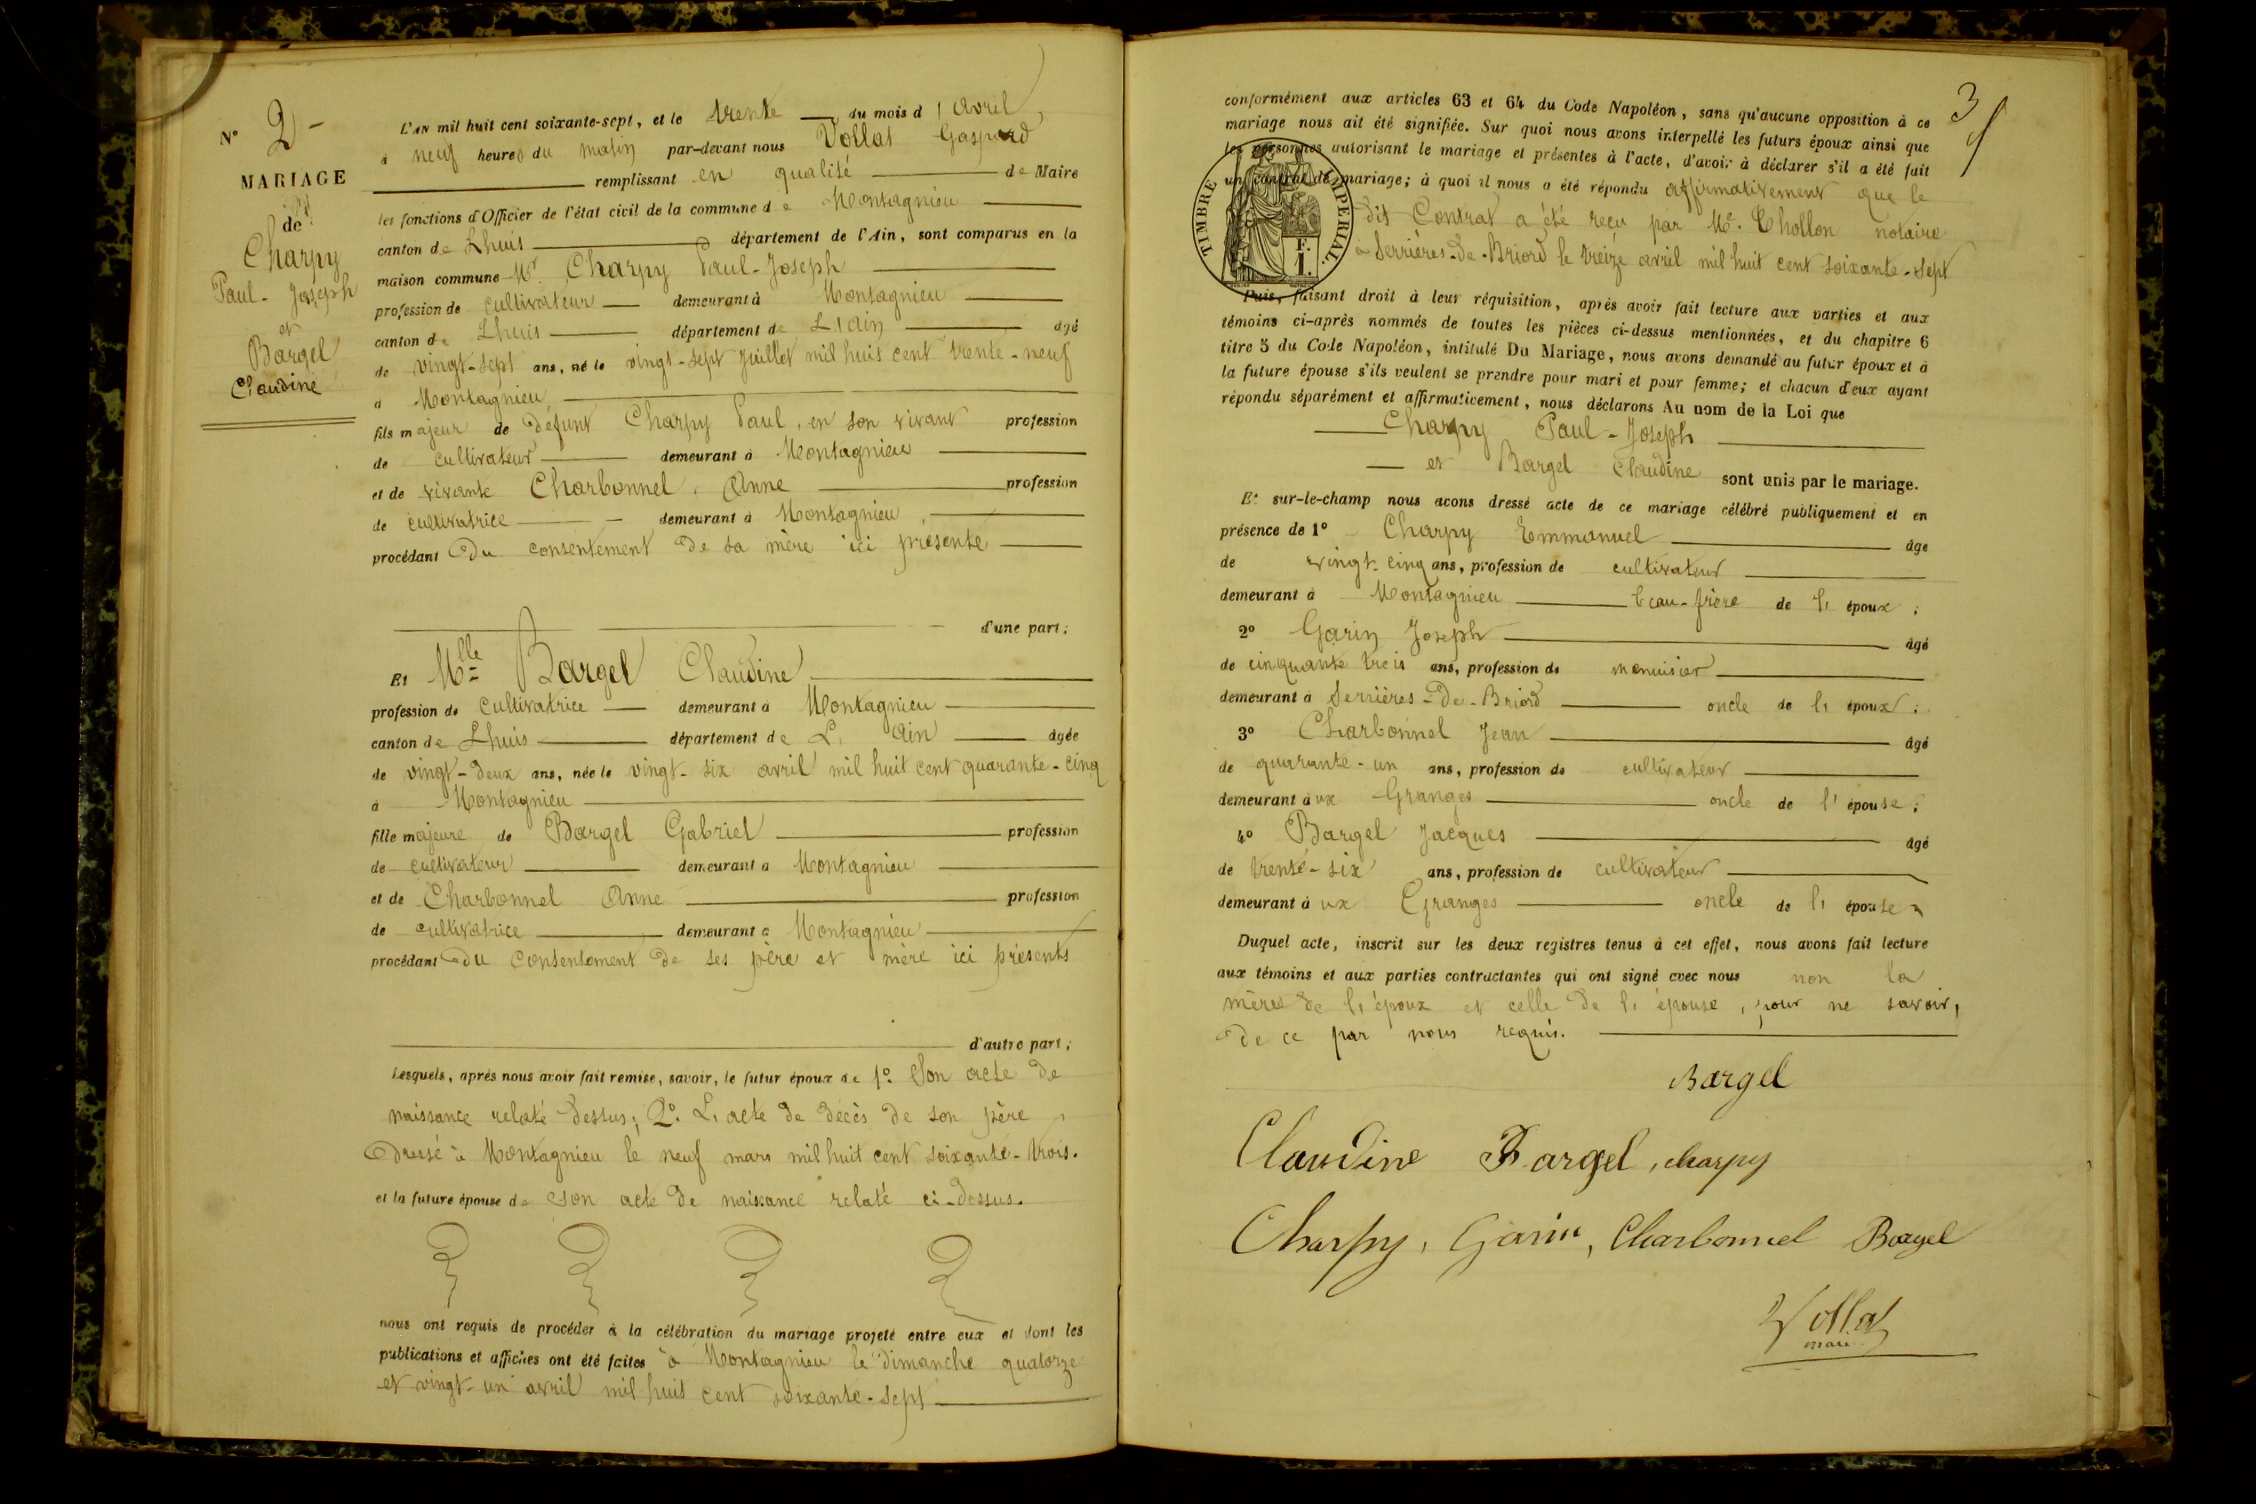 N° 2
MARIAGE
de
Charpy
Paul-Joseph
et
Bargel
Claudine
L'AN mil huit cent soixante-sept, et le trente du mois d'avril,
à neuf heures du matin par-devant nous Vollat Gaspard
remplissant en qualité de Maire
les fonctions d'Officier de l'état civil de la commune de Montagnieu
canton de Lhuis département de l'Ain, sont comparus en la
maison commune Mr Charpy Paul-Joseph
profession de cultivateur demeurant à Montagnieu
canton de Lhuis département de L'Ain âgé
de vingt-sept ans, né le vingt-sept Juillet mil huit cent trente-neuf
à Montagnieu
fils majeur de défunt Charpy Paul, en son vivant profession
de cultivateur demeurant à Montagnieu
et de vivante Charbonnel Anne profession
de cultivatrice demeurant à Montagnieu
procédant Du consentement De sa mère ici présente
d'une part;
Et Mlle Bargel Claudine
profession de cultivatrice demeurant à Montagnieu
canton de Lhuis département de L'Ain âgée
de vingt-deux ans, née le vingt-six avril mil huit cent quarante-cinq
à Montagnieu
fille majeure de Bargel Gabriel profession
de cultivateur demeurant à Montagnieu
et de Charbonnel Anne profession
de cultivatrice demeurant à Montagnieu
procédant du consentement de ses père et mère ici présents
d'autre part;
Lesquels, après nous avoir fait remise, savoir, le futur époux de 1° Son acte de
naissance relaté dessus; 2° L'acte de décès de son père
Dressé à Montagnieu le neuf mars mil huit cent soixante-trois.
et la future épouse de son acte de naissance relaté ci-dessus.
nous ont requis de procéder à la célébration du mariage projeté entre eux et dont les
publications et affiches ont été faites à Montagnieu le dimanche quatorze
et vingt-un avril mil huit cent soixante-sept
3
conformément aux articles 63 et 64 du Code Napoléon, sans qu'aucune opposition à ce
mariage nous ait été signifiée. Sur quoi nous avons interpellé les futurs époux ainsi que
les personnes autorisant le mariage et présentes à l'acte, d'avoir à déclarer s'il a été fait
un contrat de mariage; à quoi il nous a été répondu affirmativement que le
dit Contrat a été reçu par Me. Chollon notaire
à Serrières-de-Briord le treize avril mil huit cent soixante-sept
TIMBRE IMPERIAL.
F.
1.
Puis, faisant droit à leur réquisition, après avoir fait lecture aux parties et aux
témoins ci-après nommés de toutes les pièces ci-dessus mentionnées, et du chapitre 6
titre 5 du Code Napoléon, intitulé Du Mariage, nous avons demandé au futur époux et à
la future épouse s'ils veulent se prendre pour mari et pour femme; et chacun d'eux ayant
répondu séparément et affirmativement, nous déclarons Au nom de la Loi que
Charpy Paul-Joseph
et Bargel Claudine sont unis par le mariage.
Et sur-le-champ nous avons dressé acte de ce mariage célébré publiquement et en
présence de 1° Charpy Emmanuel âgé
de vingt-cinq ans, profession de cultivateur
demeurant à Montagnieu beau-frère de l'époux;
2° Garin Joseph âgé
de cinquante trois ans, profession de menuisier
demeurant à Serrières-de-Briord oncle de l'époux;
3° Charbonnel Jean âgé
de quarante-un ans, profession de cultivateur
demeurant aux Granges oncle de l'épouse;
4° Bargel Jacques âgé
de trente-six ans, profession de cultivateur
demeurant aux Granges oncle de l'épouse
Duquel acte, inscrit sur les deux registres tenus à cet effet, nous avons fait lecture
aux témoins et aux parties contractantes qui ont signé avec nous non la
mères de l'époux et celle de l'épouse, pour ne savoir,
De ce par nous requis.
Bargel
Claudine Bargel, charpy
Charpy, Garin, Charbonnel Bargel
Vollat
maire